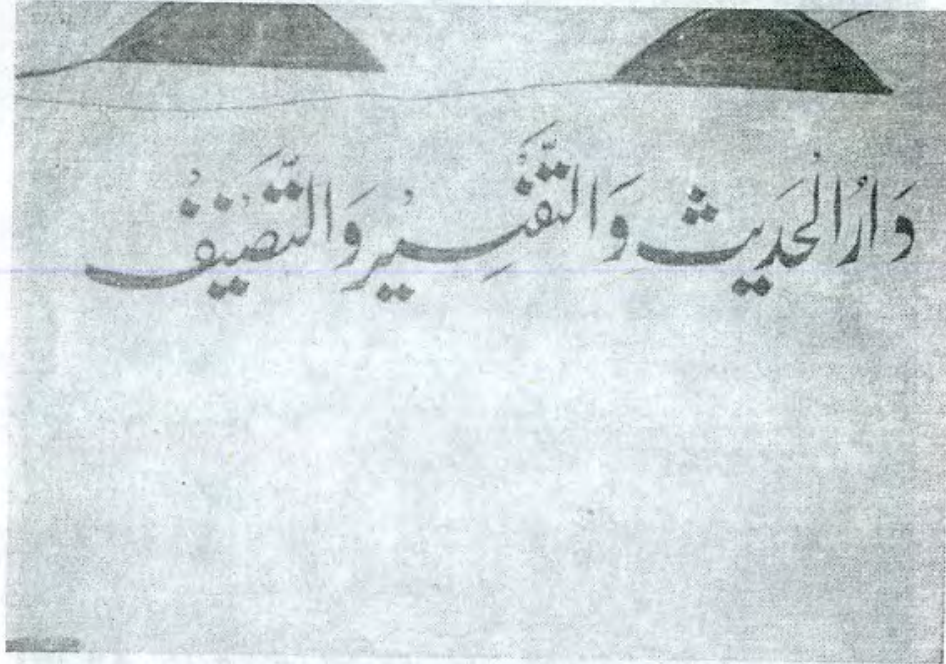 دَارُ الْحَدِيث وَالتَّفْسِير وَالتَّصْنِيف